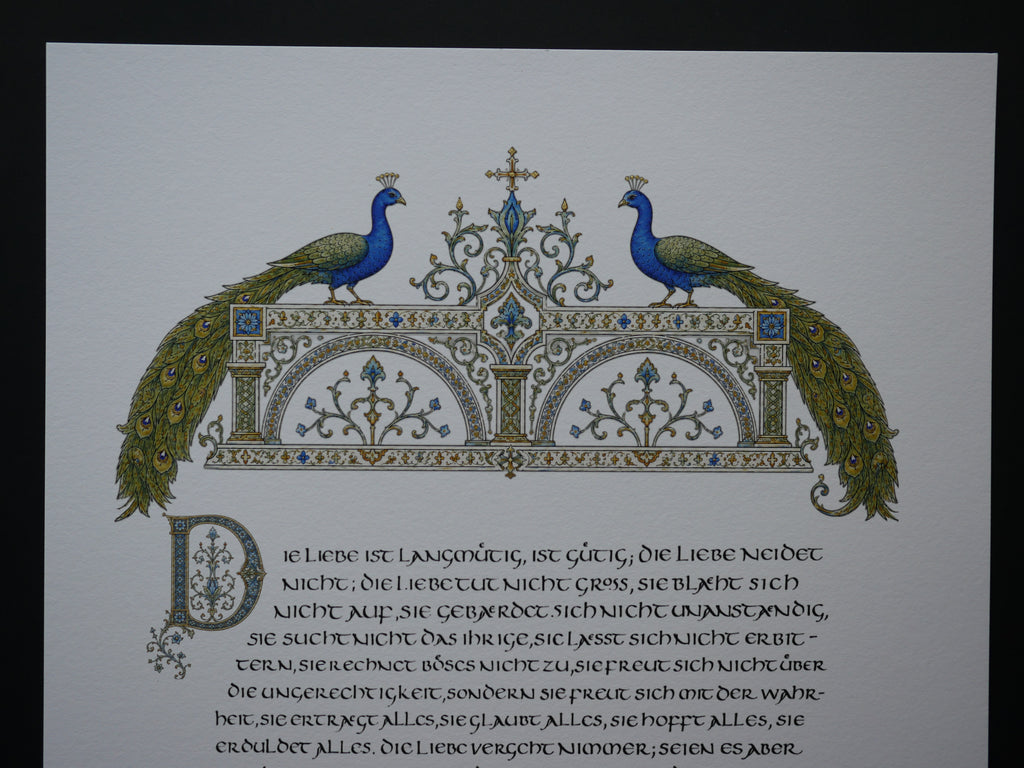 DIE LIEBE IST LANGMŮTIG, IST GŮTIG; DIE LIEBE NEIDET
NICHT; DIE LIEBE TUT NICHT GROSS, SIE BLÆHT SICH
NICHT AUF, SIE GEBÆRDET SICH NICHT UNANSTÆNDIG,
SIE SUCHT NICHT DAS IHRIGE, SIE LÆSST SICH NICHT ERBIT-
TERN, SIE RECHNET BOͤSES NICHT ZU, SIE FREUT SICH NICHT ŮBER
DIE UNGERECHTIGKEIT, SONDERN SIE FREUT SICH MIT DER WAHR-
HEIT, SIE ERTRÆGT ALLES, SIE GLAUBT ALLES, SIE HOFFT ALLES, SIE
ERDULDET ALLES. DIE LIEBE VERGEHT NIMMER; SEIEN ES ABER